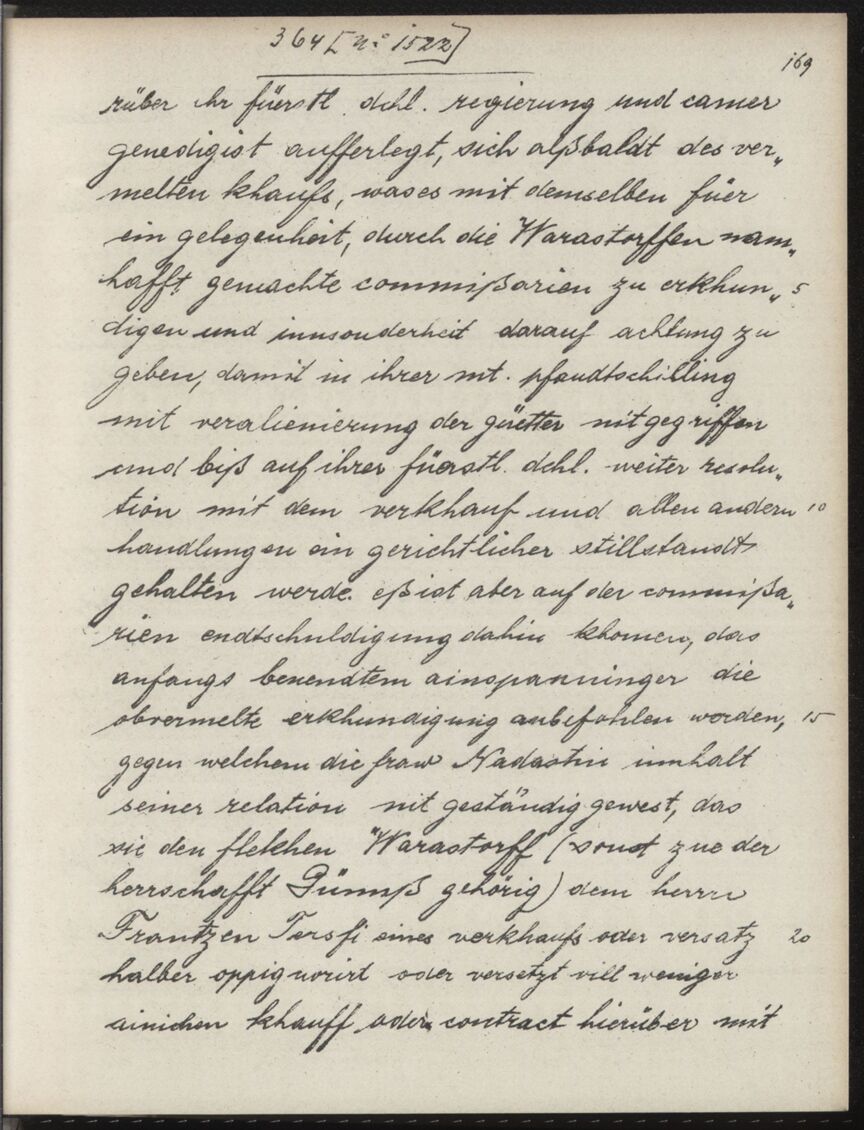 364 [n: 1522]
169
rüber ihr fürstl. dchl. regierung und camer
genedigist aufferlegt, sich alßbaldt des ver„
melten khaufs, wases mit demselben füer
ein gelegenheit, durch die Warastorffen nam„
hafft gemachte commißarien zu erkhun„ 5
digen und innsonderheit darauf achtung zu
geben, damit in ihrer mt. pfandtschilling
mit veralienierung der güetter nit gegriffen
und biß auf ihrer fürstl. dchl. weiter resolu„
tion mit dem verkhauf und allen andern 10
handlungen ein gerichtlicher stillstandt
gehalten werde. eß ist aber auf der commißa„
rien endtschuldigung dahin khomen, das
anfangs benendtem ainspanninger die
obvermelte erkhundigung anbefohlen worden, 15
gegen welchem die fraw Nadastin innhalt
seiner relation nit geständig gewest, das
sie den flekhen Warastorff (sonst zue der
herrschafft Günnß gehörig) dem herrn
Frantzen Tersfi eines verkhaufs oder versatz 20
halber oppignorirt oder versetzt vill weniger
ainichen khauff oder contract hierüber mit